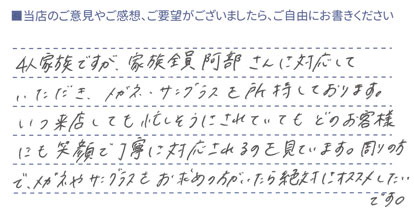 ■当店のご意見やご感想、ご要望がございましたら、ご自由にお書きください
4人家族ですが、家族全員阿部さんに対応して
いただき、メガネ・サングラスを所持しております。
いつ来店しても忙しそうにされていてもどのお客様
にも笑顔で丁寧に対応されるのを見ています。周りの方
で、メガネやサングラスをお求めの方がいたら絶対にオススメしたい
です。